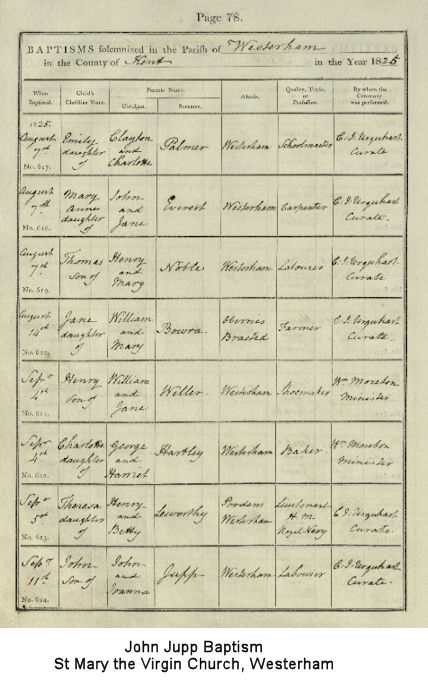 Page 78.
BAPTISMS solemnized in the Parish of Westerham
in the County of Kent in the Year 1825
When Baptized. Child's Christian Name. Parents Name. Abode. Quality, Trade, or Profession. By whom the Ceremony was performed.
Christian. Surname.
1825.
August 7th Emily daughter of Clayton and Charlotte Palmer Westerham Schoolmaster C. J. Urquhart Curate
No. 617.
August 7th Mary Anne daughter of John and Jane Everest Westerham Carpenter C. J. Urquhart Curate.
No. 618.
August 7th Thomas Son of Henry and Mary Noble Westerham Labourer C. J. Urquhart Curate
No. 619.
August 14th Jane daughter of William and Mary Bowra. Brasted Farmer C. J. Urquhart Curate
No. 620.
Sepr 4th Henry Son of William and Jane Weller Westerham Shoemaker Wm Moreton Minister
No. 621.
Sepr 4th Charlotte daughter of George and Harriet Hartley Westerham Baker Wm Moreton Minister
No. 622.
Sepr 5th Theresa daughter of Henry and Betty Leworthy Westerham Lieutenant H. M. Royal Navy C. J. Urquhart Curate.
No. 623.
Sepr 11th John Son of John and Joanna Jupp Westerham Labourer C. J. Urquhart Curate
No. 624.
John Jupp Baptism
St Mary the Virgin Church, Westerham